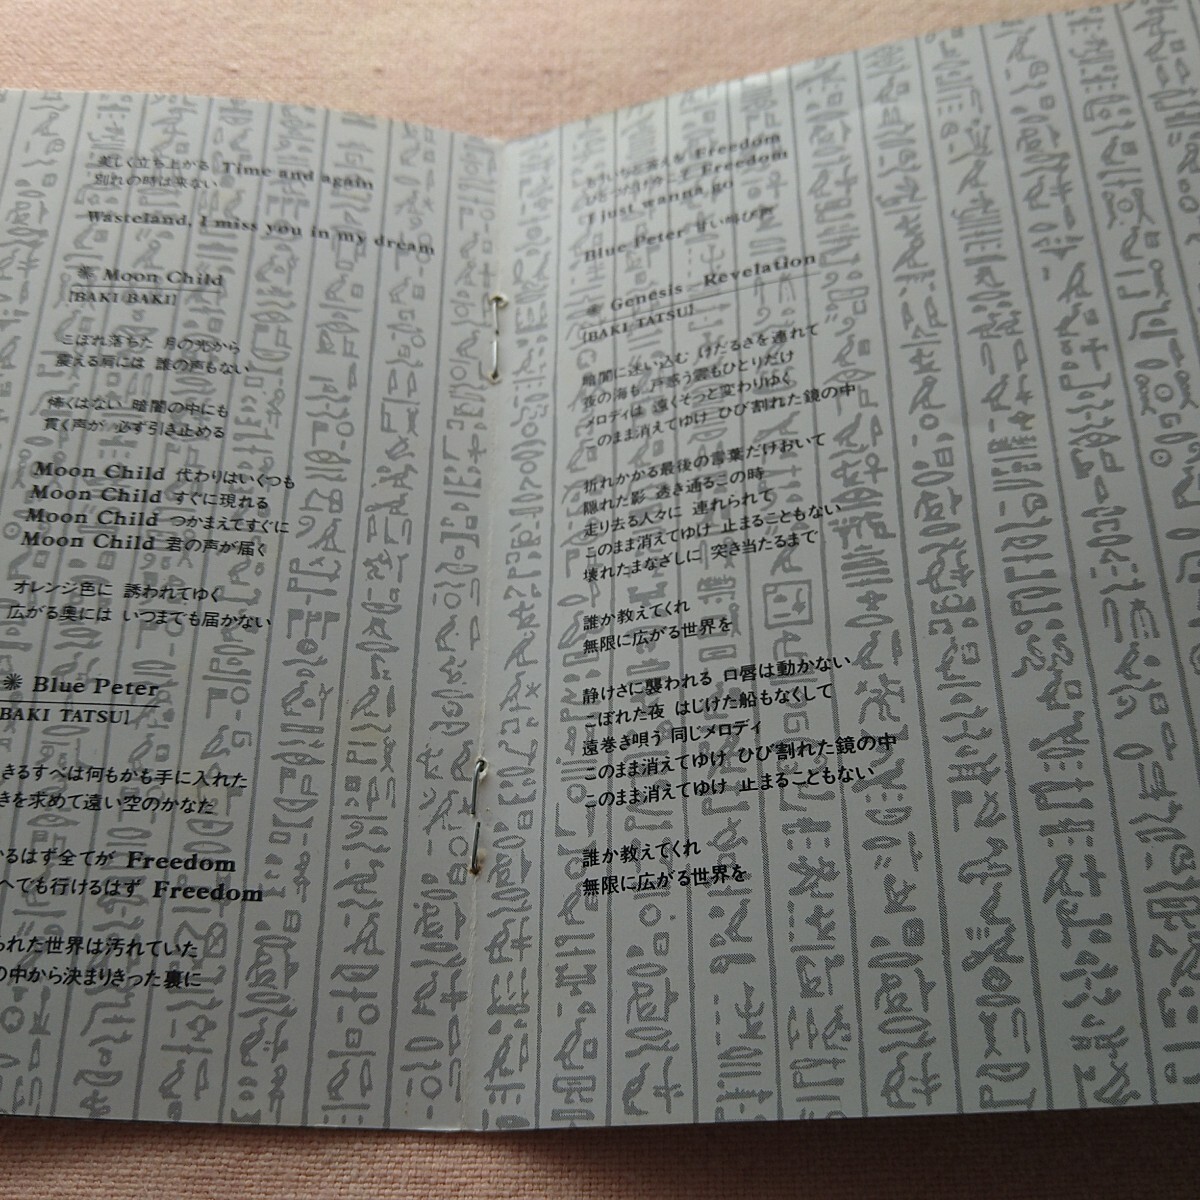 美しく立ち上がる Time and again
別れの時は来ない
Wasteland, I miss you in my dream
Moon Child
[BAKI BAKI]
こぼれ落ちた 月の光から
震える肩には 誰の声もない
怖くはない 暗闇の中にも
貫く声が 必ず引き止める
Moon Child 代わりはいくつも
Moon Child すぐに現れる
Moon Child つかまえてすぐに
Moon Child 君の声が届く
オレンジ色に 誘われてゆく
広がる奥には いつまでも届かない
Blue Peter
BAKI TATSU]
きるすべは何もかも手に入れた
きを求めて遠い空のかなた
るはず全てが Freedom
へでも行けるはず Freedom
られた世界は汚れていた
の中から決まりきった裏に
Freedom
Freedom
I just wanna go
Blue Peter 甘い叫び声
Genesis Revelation
[BAKI TATSU]
暗闇に迷い込む けだるさを連れて
夜の海も 戸惑う雲もひとりだけ
メロディは 遠くそっと変わりゆく
このまま消えてゆけ ひび割れた鏡の中
折れかかる最後の言葉だけおいて
隠れた影 透き通るこの時
走り去る人々に 連れられて
このまま消えてゆけ 止まることもない
壊れたまなざしに 突き当たるまで
誰か教えてくれ
無限に広がる世界を
静けさに襲われる 口唇は動かない
こぼれた夜 はじけた船もなくして
遠巻き唄う 同じメロディ
このまま消えてゆけ ひび割れた鏡の中
このまま消えてゆけ 止まることもない
誰か教えてくれ
無限に広がる世界を